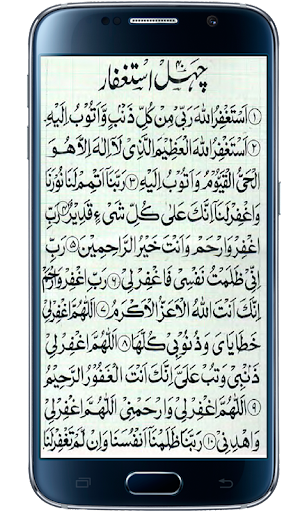 چہل استغفار
۱ اَسْتَغْفِرُ اللهَ رَبِّىْ مِنْ كُلِّ ذَنْبٍ وَّاَتُوْبُ اِلَيْهِ
۲ اَسْتَغْفِرُ اللهَ الْعَظِيْمَ الَّذِىْ لَآ اِلٰهَ اِلَّا هُوَ
الْحَىُّ الْقَيُّوْمُ وَاَتُوْبُ اِلَيْهِ ۳ رَبَّنَآ اَتْمِمْ لَنَا نُوْرَنَا
وَاغْفِرْ لَنَا اِنَّكَ عَلٰى كُلِّ شَىْءٍ قَدِيْرٌ ۴ رَبِّ
اغْفِرْ وَارْحَمْ وَاَنْتَ خَيْرُ الرَّاحِمِيْنَ ۵ رَبِّ
اِنِّىْ ظَلَمْتُ نَفْسِىْ فَاغْفِرْلِىْ ۶ رَبِّ اغْفِرْ وَارْحَمْ
اِنَّكَ اَنْتَ اللهُ الْاَعَزُّ الْاَكْرَمُ ۷ اَللّٰهُمَّ اغْفِرْلِىْ
خَطَايَاىَ وَذُنُوْبِىْ كُلَّهَا ۸ اَللّٰهُمَّ اغْفِرْلِىْ
ذَنْبِىْ وَتُبْ عَلَىَّ اِنَّكَ اَنْتَ الْغَفُوْرُ الرَّحِيْمُ
۹ اَللّٰهُمَّ اغْفِرْلِىْ وَارْحَمْنِىْ اَللّٰهُمَّ اغْفِرْلِىْ
وَاهْدِنِىْ ۱۰ رَبَّنَا ظَلَمْنَآ اَنْفُسَنَا وَاِنْ لَّمْ تَغْفِرْلَنَا